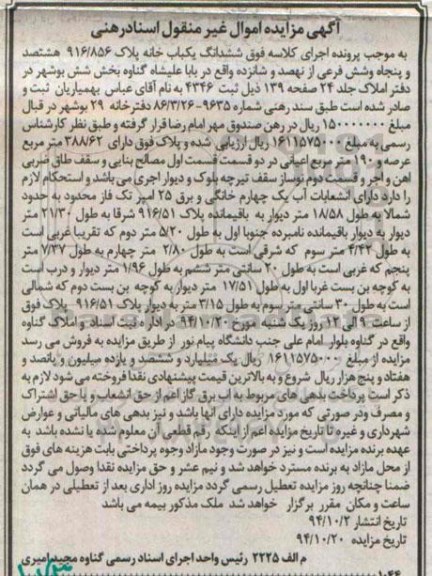 آگهی مزایده اموال غیر منقول اسنادرهنی
به موجب پرونده اجرای کلاسه فوق ششدانگ یکباب خانه پلاک ۹۱۶/۸۵۶ هشتصد
و پنجاه وشش فرعی از نهصد و شانزده واقع در بابا علیشاه گناوه بخش شش بوشهر در
دفتر املاک جلد ۲۴ صفحه ۱۳۹ ذیل ثبت ۴۳۴۶ به نام آقای عباس بهمیاریان ثبت و
صادر شده است طبق سند رهنی شماره ۹۶۳۵-۸۶/۳/۲۶ دفترخانه ۲۹ بوشهر در قبال
مبلغ ۱۵۰۰۰۰۰۰۰ ریال در رهن صندوق مهر امام رضا قرار گرفته و طبق نظر کارشناس
رسمی به مبلغ ۱۶۱۱۵۷۵۰۰۰ ریال ارزیابی شده و پلاک فوق دارای ۳۸۸/۶۲ متر مربع
عرصه و ۱۹۰ متر مربع اعیانی در دو قسمت قسمت اول مصالح بنایی و سقف طاق ضربی
آهن و آجر و قسمت دوم نوساز سقف تیرچه بلوک و دیوار آجری می باشد و استحکام لازم
را دارد دارای انشعابات آب یک چهارم خانگی و برق ۲۵ آمپر تک فاز محدود به حدود
شمالا به طول ۱۸/۵۸ متر دیوار به باقیمانده پلاک ۹۱۶/۵۱ شرقا به طول ۲۱/۳۰ متر
دیوار به دیوار باقیمانده نامبرده جنوبا اول به طول ۵/۲۰ متر دوم که تقریبا غربی است
به طول ۴/۴۲ متر سوم که شرقی است به طول ۲/۸۰ متر چهارم به طول ۷/۳۷ متر
پنجم که غربی است به طول ۲۰ سانتی متر ششم به طول ۱/۹۶ متر دیوار و درب است
به کوچه بن بست غربا اول به طول ۱۷/۵۱ متر دیوار به کوچه بن بست دوم که شمالی
است به طول ۳۰ سانتی متر سوم به طول ۳/۱۵ متر به دیوار پلاک ۹۱۶/۵۱ پلاک فوق
از ساعت ۹ الی ۱۲ روز یک شنبه مورخ ۹۴/۱۰/۲۰ در اداره ثبت اسناد و املاک گناوه
واقع در گناوه بلوار امام علی جنب دانشگاه پیام نور از طریق مزایده به فروش می رسد
مزایده از مبلغ ۱۶۱۱۵۷۵۰۰۰ ریال یک میلیارد و ششصد و یازده میلیون و پانصد و
هفتاد و پنج هزار ریال شروع و به بالاترین قیمت پیشنهادی نقدا فروخته می شود لازم به
ذکر است پرداخت بدهی های مربوط به آب برق گاز اعم از حق انشعاب و یا حق اشتراک
و مصرف و در صورتی که مورد مزایده دارای آنها باشد و نیز بدهی های مالیاتی و عوارض
شهرداری و غیره تا تاریخ مزایده اعم از اینکه رقم قطعی آن معلوم شده یا نشده باشد به
عهده برنده مزایده است و نیز در صورت وجود مازاد وجوه پرداختی بابت هزینه های فوق
از محل مازاد به برنده مسترد خواهد شد و نیم عشر و حق مزایده نقدا وصول می گردد
ضمنا چنانچه روز مزایده تعطیل رسمی گردد مزایده روز اداری بعد از تعطیلی در همان
ساعت و مکان مقرر برگزار خواهد شد ملک مذکور بیمه می باشد
تاریخ انتشار ۹۴/۱۰/۲
تاریخ مزایده ۹۴/۱۰/۲۰
م الف ۲۲۲۵ رئیس واحد اجرای اسناد رسمی گناوه مجید امیری